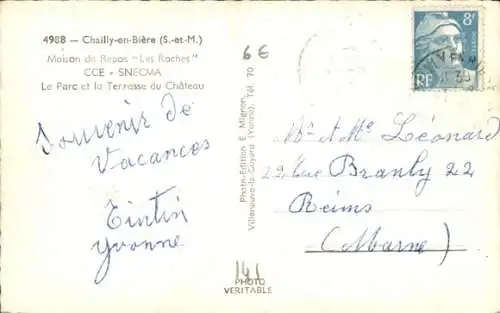 4988 — Chailly-en-Bière (S.-et-M.)
Maison de Repos "Les Roches"
CCE - SNECMA
Le Parc et la Terrasse du Château
6 €
8F
RF
Souvenir de
Vacances
Tintin
Yvonne
Photo-Edition E. Mignon
Villeneuve-la-Guyard (Yonne). Tél. 70
Mr A Me Léonard
22, Rue Branly 22
Reims
(Marne)
141
PHOTO
VERITABLE